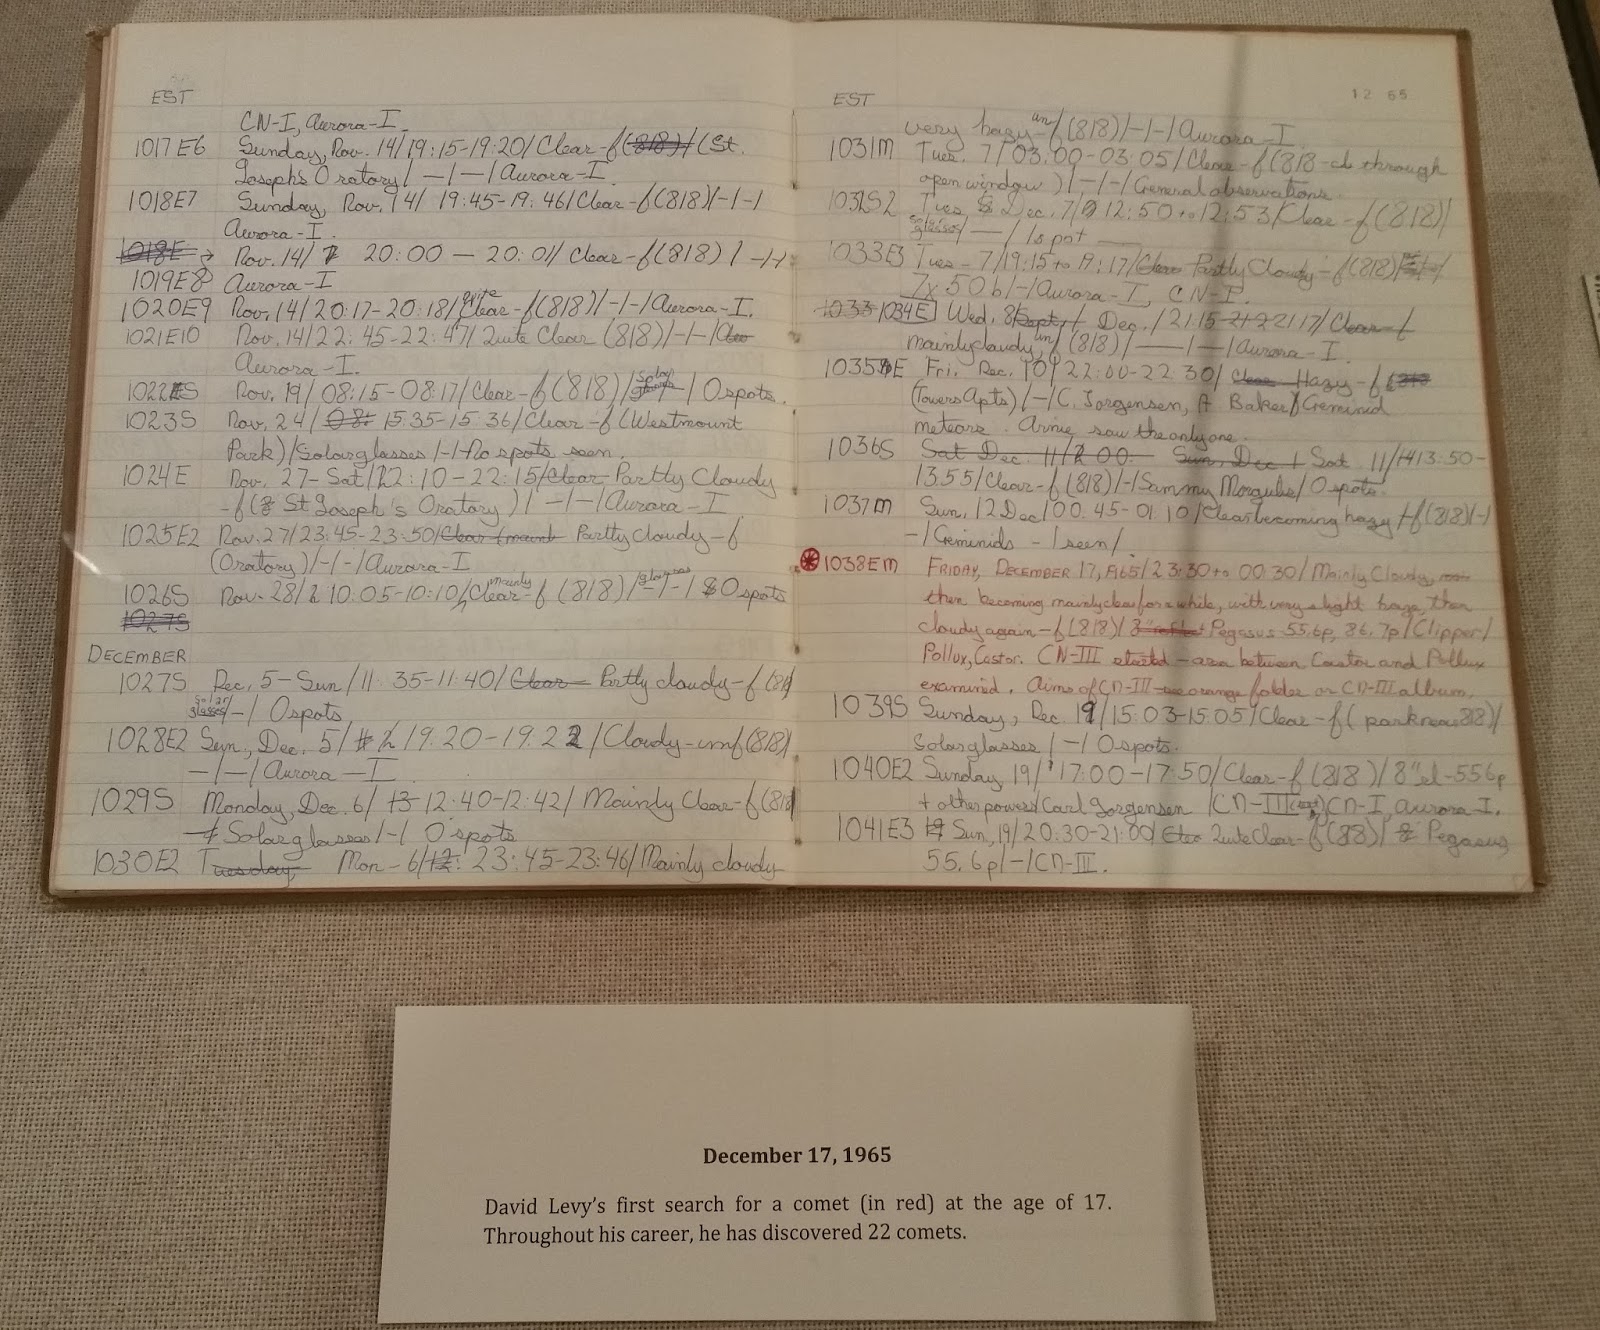 EST
CN-I, Aurora-I.
1017E6 Sunday, Nov. 14/19:15-19:20/Clear-f(818)/(St.
Joseph's Oratory/-/-/Aurora-I
1018E7 Sunday, Nov. 14/ 19:45-19:46/Clear-f(818)/-/-/
Aurora-I.
1018E Nov. 14/ 20:00 — 20:01/ Clear-f(818) / -/-/
1019E8 Aurora-I
1020E9 Nov. 14/20:17-20:18/quite Clear-f(818)/-/-/Aurora-I.
1021E10 Nov. 14/22:45-22:47/Quite Clear (818)/-/-/
Aurora-I.
1022S Nov. 19/ 08:15-08:17/Clear-f(818)/solar /-/ 0 spots.
1023S Nov. 24/ 15:35-15:36/Clear-f(Westmount
Park)/Solarglasses/-/-No spots seen.
1024E Nov. 27-Sat/22:10-22:15/Clear-Partly Cloudy
-f(St Joseph's Oratory)/-/-/Aurora-I
1025E2 Nov. 27/23:45-23:50/Clear Partly cloudy-f
(Oratory)/-/-/Aurora-I
1026S Nov. 28/10:05-10:10/mainly Clear-f(818)/glasses/-/ 0 spots
1027S
DECEMBER
1027S Dec. 5-Sun/11:35-11:40/Clear-Partly cloudy-f(818)
solar glasses/-/ 0 spots
1028E2 Sun, Dec. 5/ 19:20-19:22/Cloudy-umf(818)/
-/-/Aurora-I
1029S Monday, Dec. 6/ 13-12:40-12:42/ Mainly Clear-f(818)
Solarglasses/-/ 0 spots
1030E2 Tuesday, Mon-6/12: 23:45-23:46/Mainly cloudy-
EST
12 65
very hazy-umf(818)/-/-/Aurora-I.
1031M Tues. 7/03:00-03:05/Clear-f(818-ch through
open window)/-/-/General observations.
1032S2 Tues Dec. 7/12:50 to 12:53/Clear-f(818)/
solar glasses/-/1 spot
1033E3 Tues-7/19:15 to 19:17/Clear Partly Cloudy-f(818)
7x50b/-/Aurora-I, CN-I.
1033 1034E Wed. 8/Sept./ Dec./21:15-21:17/Clear-f
mainly cloudy, umf(818)/-/-/Aurora-I.
1035E Fri. Dec. 10/22:00-22:30/ Clear Hazy-f(818
(Towers Apts)/-/C. Jorgensen, A Baker/Geminid
meteors. Arnie saw the only one.
1036S Sat Dec. 11/ 00 Sun, Dec 1 Sat. 11/13:50-
13:55/Clear-f(818)/-/Sammy Margulis/ 0 spots.
1037M Sun. 12 Dec/00:45-01:10/Clear becoming hazy-f(818)/-/
-/Geminids - 1 seen/.
1038EM FRIDAY, DECEMBER 17, 1965/23:30 to 00:30/Mainly Cloudy,
then becoming mainly clear for a while, with very slight haze, then
cloudy again-f(818)/8" Pegasus-55.6p, 86.7p/Clipper/
Pollux, Castor. CN-III started-area between Castor and Pollux
examined. Aims of CN-III-see orange folder or CN-III album.
1039S Sunday, Dec. 19/15:03-15:05/Clear-f(park near 818)/
Solarglasses/-/ 0 spots.
1040E2 Sunday 19/17:00-17:50/Clear-f(818)/8"rl-55.6p
+ other powers/Carl Jorgensen/CN-III, CN-I, Aurora-I.
1041E3 Sun, 19/20:30-21:00/Clear Quite Clear-f(818)/ Pegasus,
55.6p/-/CN-III.
December 17, 1965
David Levy's first search for a comet (in red) at the age of 17.
Throughout his career, he has discovered 22 comets.